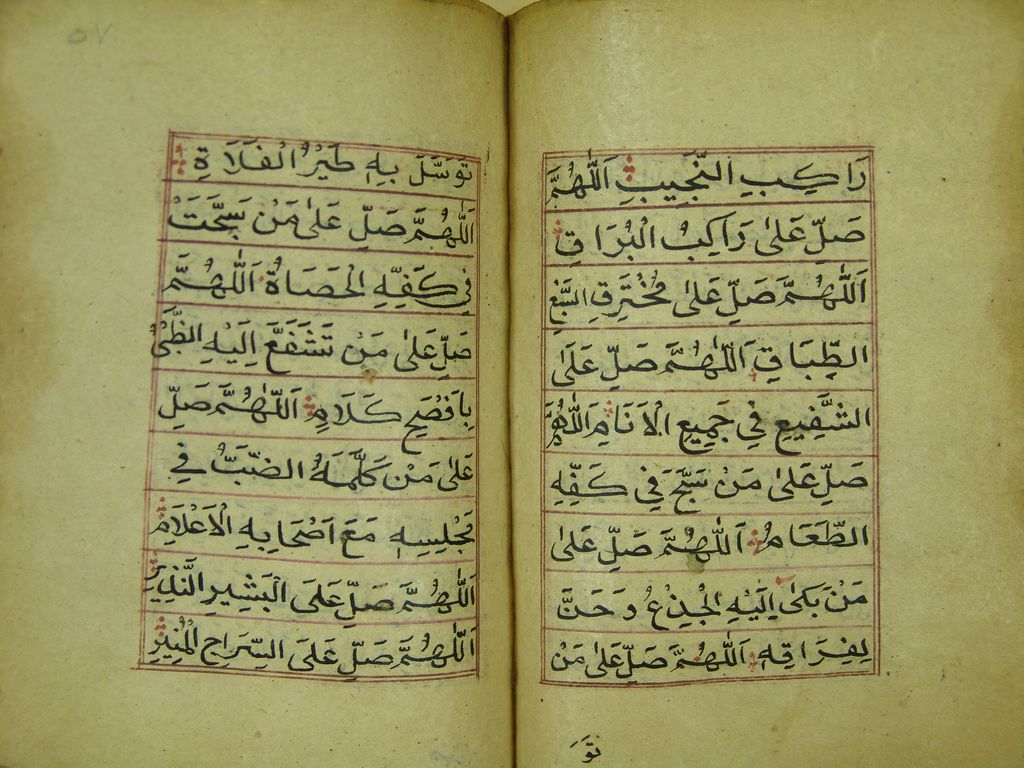 رَاكِبِ النَّجِيبِ اَللّٰهُمَّ
صَلِّ عَلٰى رَاكِبِ الْبُرَاقِ
اَللّٰهُمَّ صَلِّ عَلٰى مُخْتَرِقِ السَّبْعِ
الطِّبَاقِ اَللّٰهُمَّ صَلِّ عَلَى
الشَّفِيعِ فِي جَمِيعِ الْاَنَامِ اَللّٰهُمَّ
صَلِّ عَلٰى مَنْ سَبَّحَ فِي كَفِّهِ
الطَّعَامُ اَللّٰهُمَّ صَلِّ عَلٰى
مَنْ بَكٰى اِلَيْهِ الْجِذْعُ وَحَنَّ
لِفِرَاقِهِ اَللّٰهُمَّ صَلِّ عَلٰى مَنْ
تَوَ
٥٧
تَوَسَّلَ بِهِ طَيْرُ الْفَلَاةِ
اَللّٰهُمَّ صَلِّ عَلٰى مَنْ سَبَّحَتْ
فِي كَفِّهِ الْحَصَاةُ اَللّٰهُمَّ
صَلِّ عَلٰى مَنْ تَشَفَّعَ اِلَيْهِ الظَّبْيُ
بِاَفْصَحِ كَلَامٍ اَللّٰهُمَّ صَلِّ
عَلٰى مَنْ كَلَّمَهُ الضَّبُّ فِي
مَجْلِسِهِ مَعَ اَصْحَابِهِ الْاَعْلَامِ
اَللّٰهُمَّ صَلِّ عَلَى الْبَشِيرِ النَّذِيرِ
اَللّٰهُمَّ صَلِّ عَلَى السِّرَاجِ الْمُنِيرِ